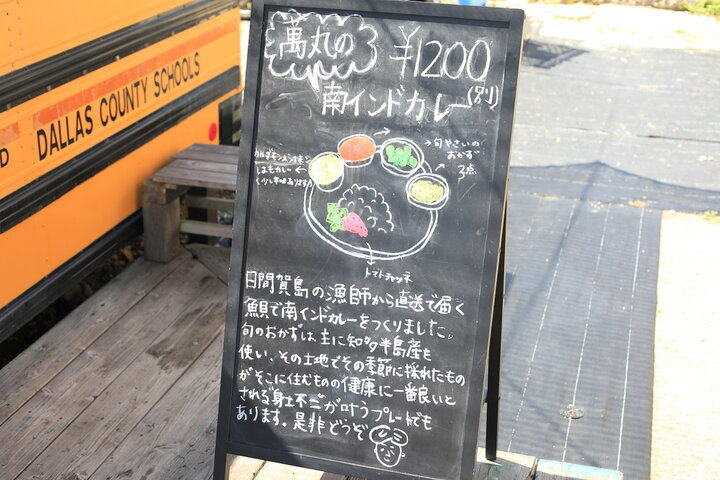 DALLAS COUNTY SCHOOLS
D
萬丸の
¥1200
(別)
南インドカレー
→旬やさいの
おかず
3点
はもカレー←
トマトチャツネ
日間賀島の漁師から直送で届く
魚で南インドカレーをつくりました。
旬のおかずは、主に知多半島産を
使い、その土地でその季節に採れたもの
がそこに住むものの健康に一番良いと
される身土不二が叶うプレートでも
あります。是非どうぞ